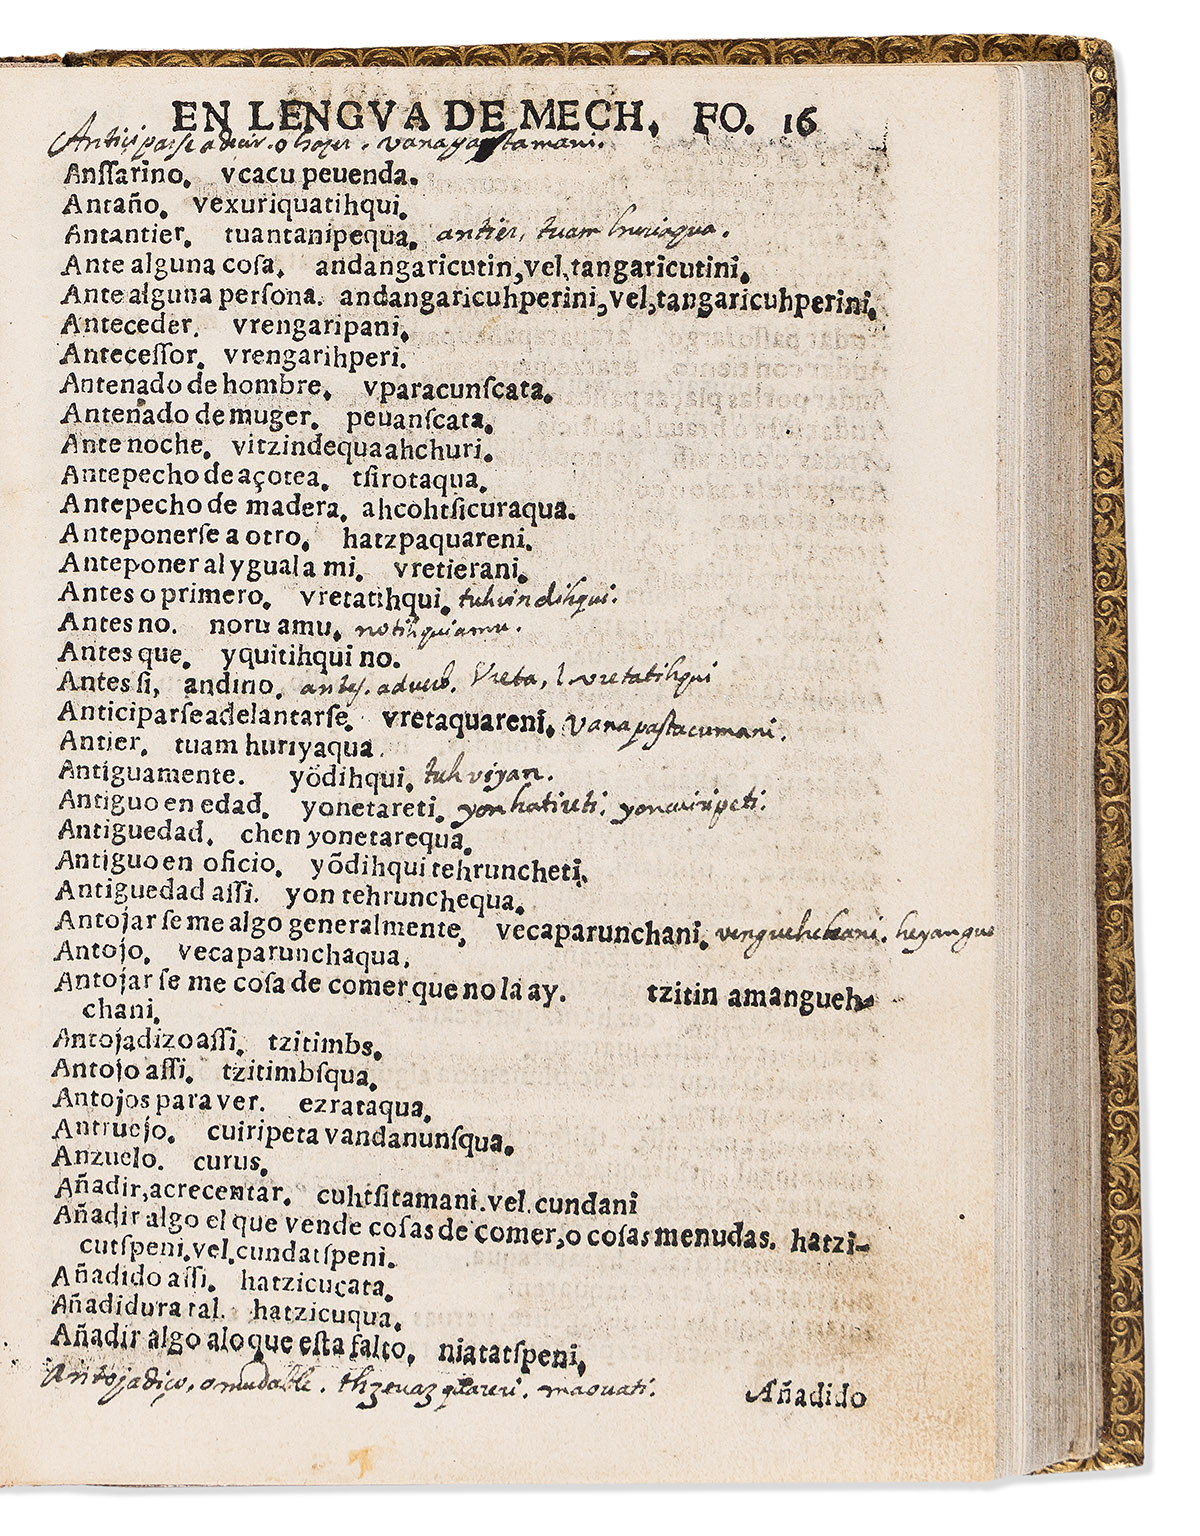 EN LENGVA DE MECH. FO. 16
Anticiparse a dezir. o hazer. vanapastamani.
Anſſarino. vcacu peuenda.
Antaño. vexuriquatihqui.
Antantier. tuantanipequa. antier, tuam huriaqua.
Ante alguna coſa. andangaricutin,vel,tangaricutini.
Ante alguna perſona. andangaricuhperini,vel,tangaricuhperini.
Anteceder. vrengaripani.
Anteceſſor. vrengarihperi.
Antenado de hombre. vparacunſcata.
Antenado de muger. peuanſcata.
Ante noche. vitzindequaahchuri.
Antepecho de açotea. tſirotaqua.
Antepecho de madera. ahcohtſicuraqua.
Anteponerſe a otro. hatzpaquareni.
Anteponer al ygual a mi. vretierani.
Antes o primero. vretatihqui. tuhvindihqui.
Antes no. noru amu. notihquiamu.
Antes que. yquitihqui no.
Antes ſi, andino. antes. adverb. Vreta, l vretatihqui
Anticiparſe adelantarſe. vretaquareni. Vanapastacumani.
Antier. tuam huriyaqua.
Antiguamente. yõdihqui. tuhviyan.
Antiguo en edad. yonetareti. yonhatireti. yoncuiripeti.
Antiguedad. chen yonetarequa.
Antiguo en oficio. yõdihqui tehruncheti.
Antiguedad aſſi. yon tehrunchequa.
Antojar ſe me algo generalmente, vecaparunchani. heyangue
Antojo. vecaparunchaqua.
Antojar ſe me coſa de comer que no la ay. tzitin amangueh-
chani.
Antojadizo aſſi. tzitimbs.
Antojo aſſi. tzitimbſqua.
Antojos para ver. ezrataqua.
Antruejo. cuiripeta vandanunſqua.
Anzuelo. curus.
Añadir,acrecentar. cuhtſitamani.vel.cundani
Añadir algo el que vende coſas de comer,o coſas menudas. hatzi-
cutſpeni.vel.cundatſpeni.
Añadido aſſi. hatzicucata.
Añadidura tal. hatzicuqua.
Añadir algo alo que eſta falto. niatatſpeni.
Antojadiço, o mudable. maouati.
Añadido